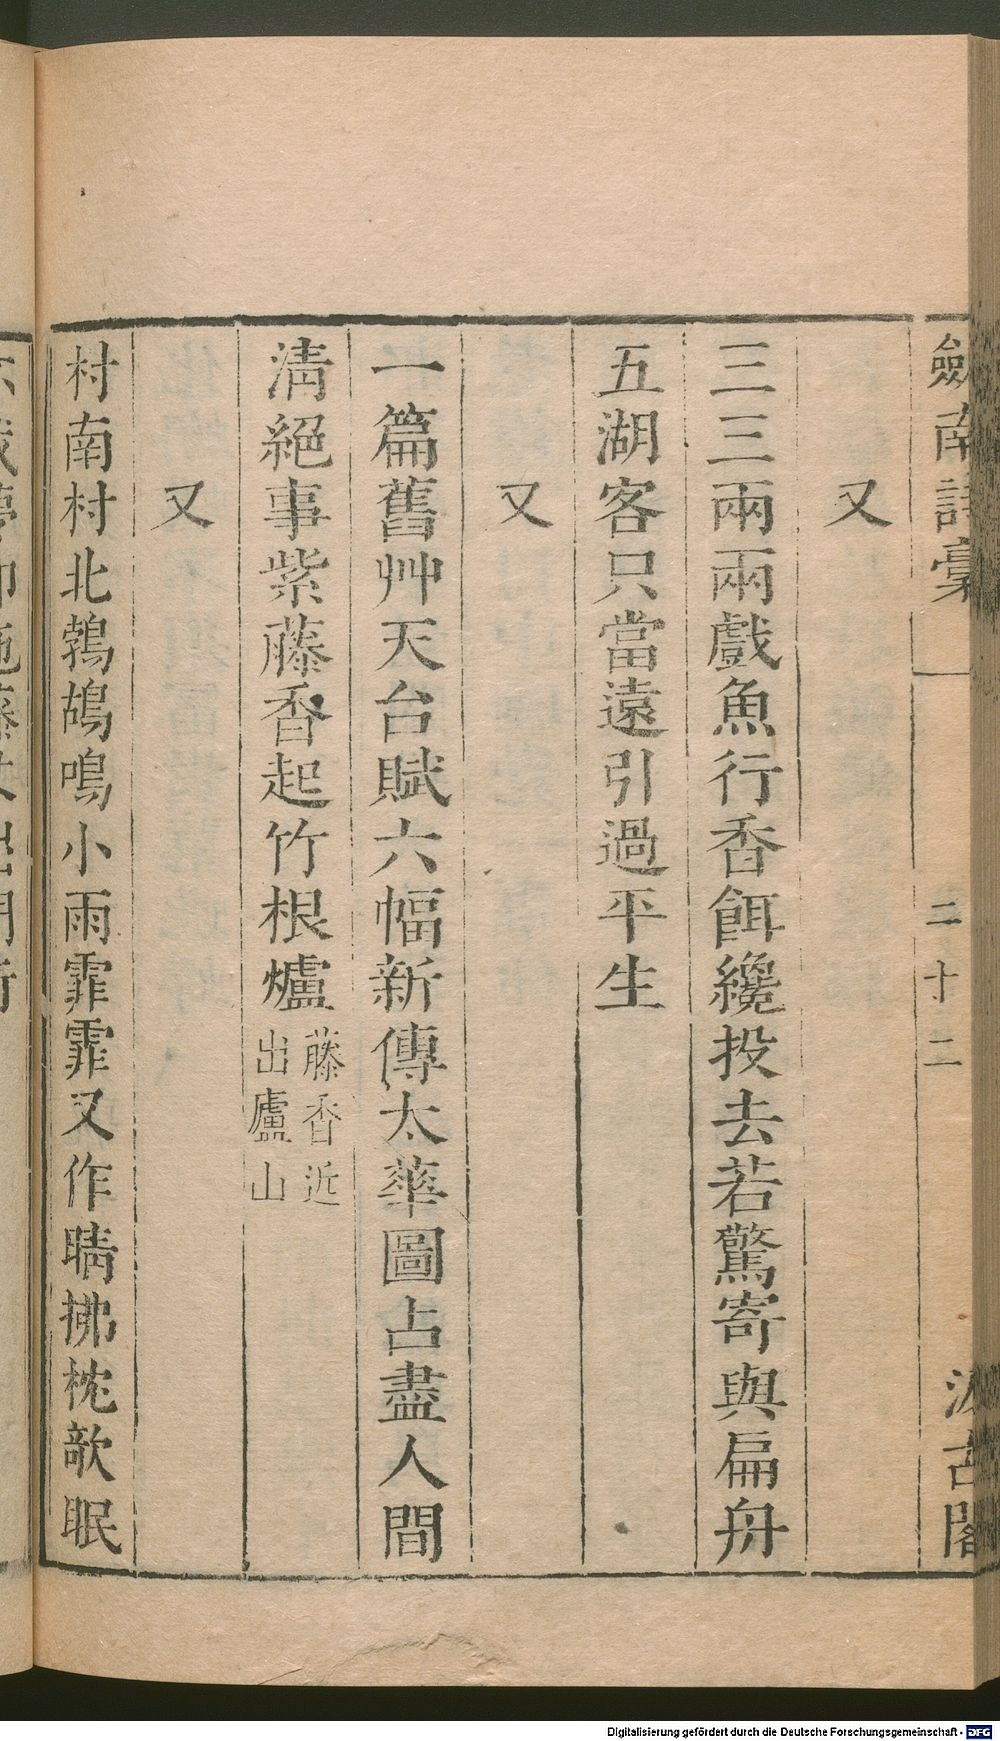 劒南詩稾
二十二
汲古閣
又
三三兩兩戲魚行香餌纔投去若驚寄與扁舟
五湖客只當遠引過平生
又
一篇舊艸天台賦六幅新傳太華圖占盡人間
淸絕事紫藤香起竹根爐藤香近
出廬山
又
村南村北鵓鴣鳴小雨霏霏又作晴拂枕欹眠
Digitalisierung gefördert durch die Deutsche Forschungsgemeinschaft - DFG